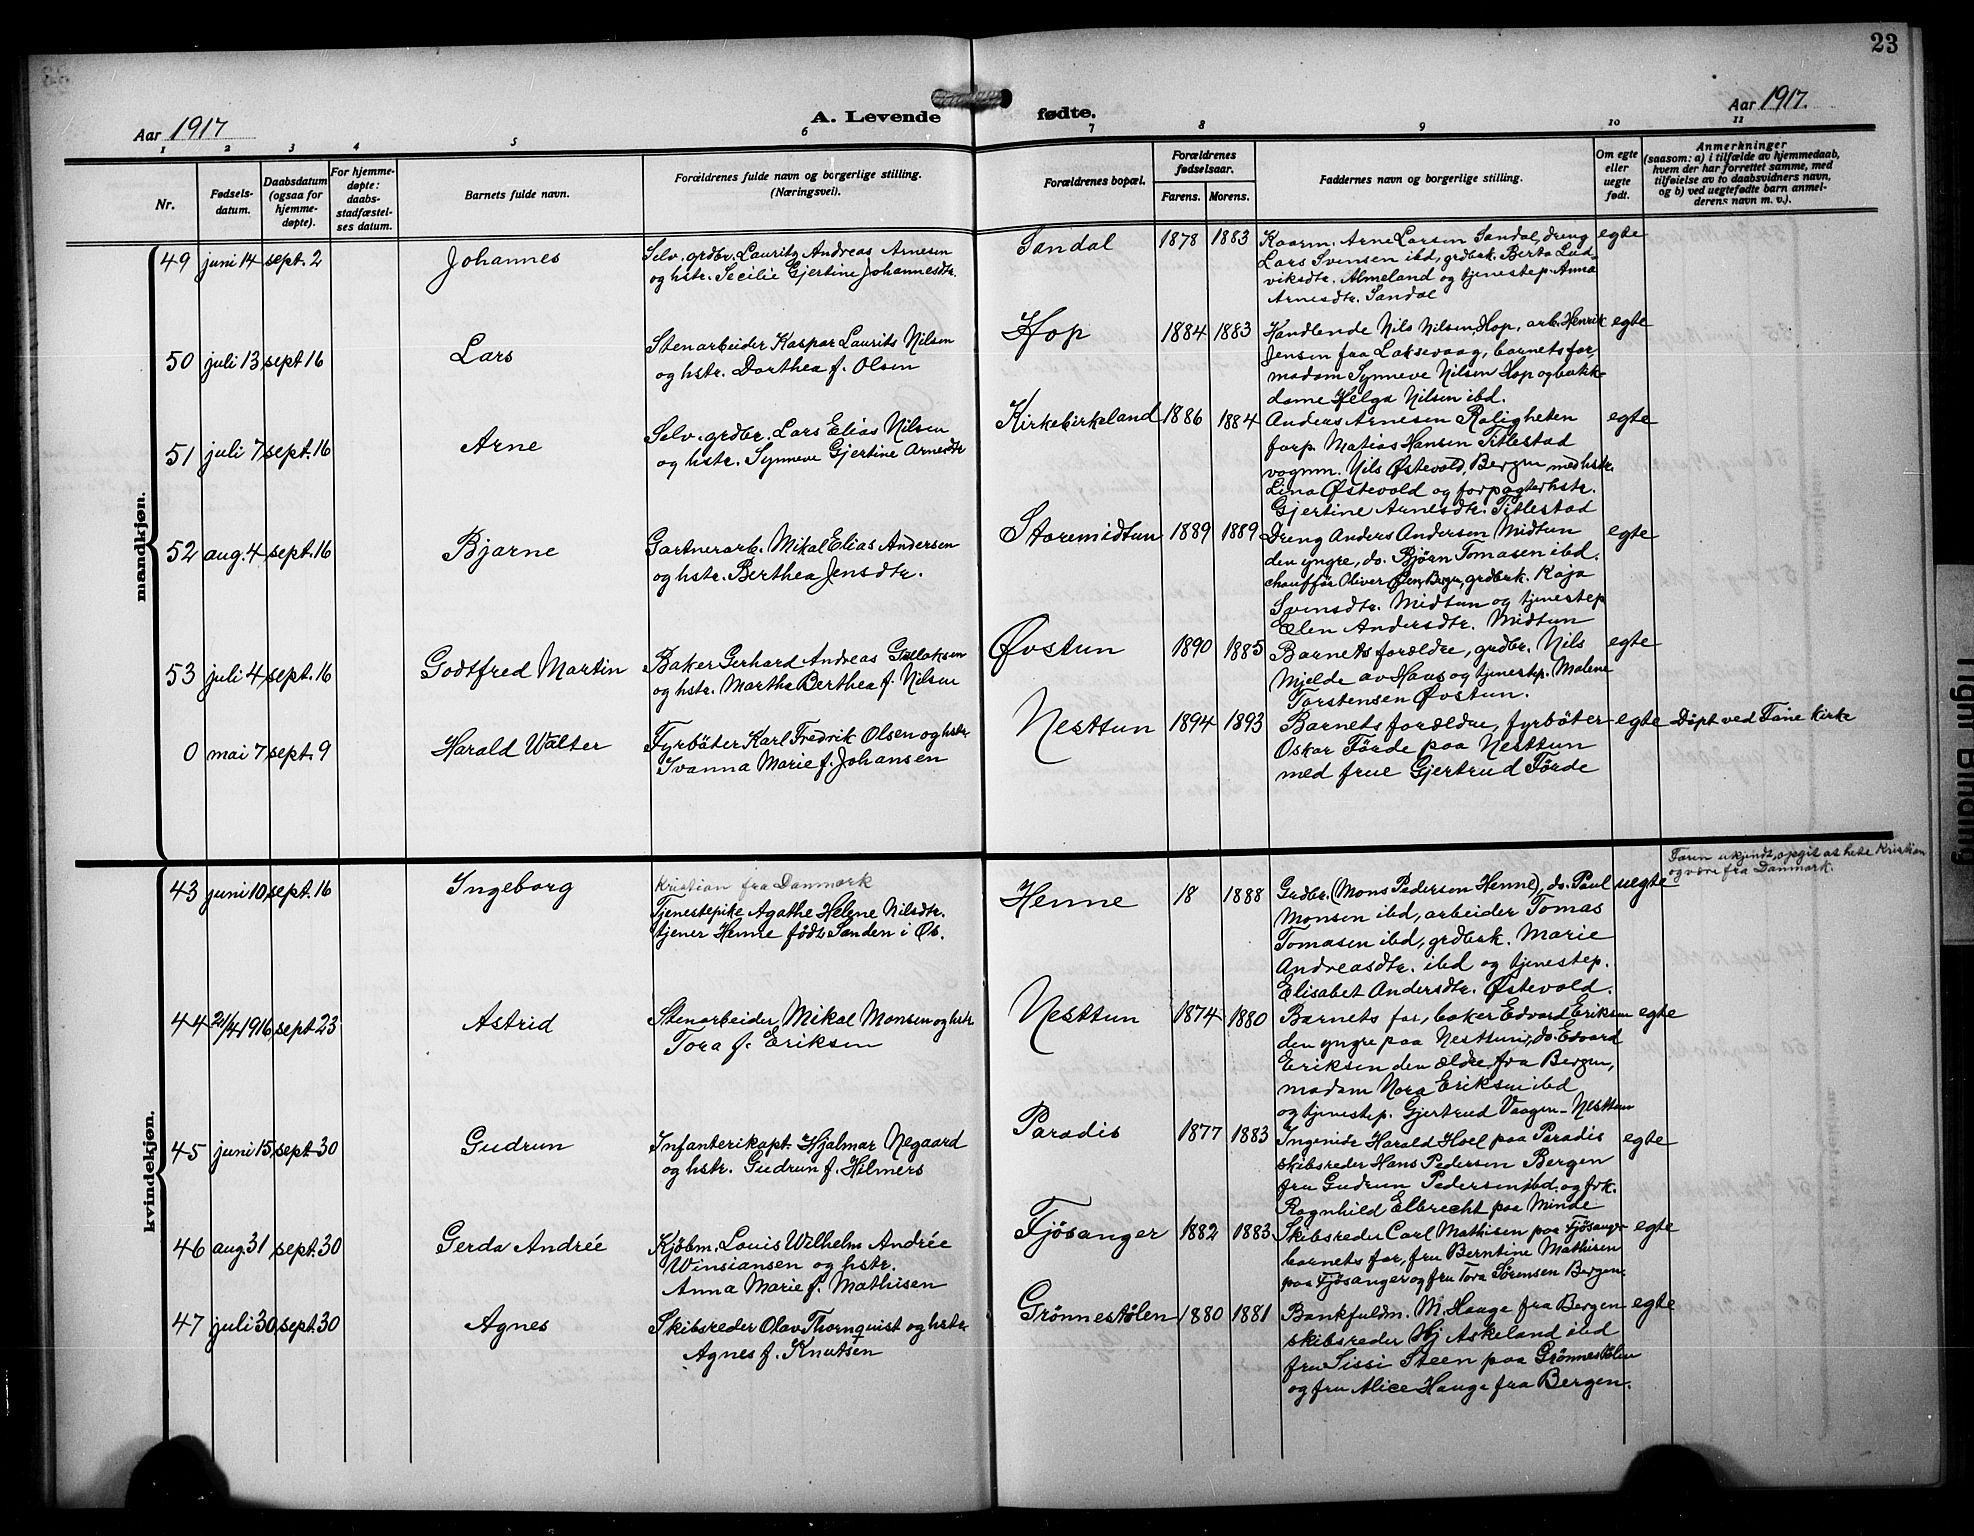 23
Aar 1917
A. Levende fødte.
Aar 1917.
1 2 3 4 5 6 7 8 9 10 11
Nr.
Fødsels-
datum.
Daabsdatum
(ogsaa for
hjemme-
døpte).
For hjemme-
døpte:
daabs-
stadfæstel-
ses datum.
Barnets fulde navn.
Forældrenes fulde navn og borgerlige stilling.
(Næringsvei).
Forældrenes bopæl.
Forældrenes
fødselsaar.
Farens. Morens.
Faddernes navn og borgerlige stilling.
Om egte
eller
uegte
født.
Anmerkninger
(saasom: a) i tilfælde av hjemmedaab,
hvem der har forrettet samme, med
tilføielse av to daabsvidners navn,
og b) ved uegtefødte barn anmel-
derens navn m. v.).
mandkjøn.
49 juni 14 sept. 2 Johannes
Selv. grdbr. Lauritz Andreas Arnesen
og hstr. Secilie Gjertine Johannesdtr.
Sandal 1878 1883
Kaarm. Arne Larsen Sandal, dreng
Lars Svensen ibd, grdbrk. Berta Lud-
viksdtr. Almeland og tjenestep. Anna
Arnesdtr. Sandal
egte
50 juli 13 sept 16 Lars
Stenarbeider Kaspar Laurits Nilsen
og hstr. Dorthea f. Olsen
Hop 1884 1883
Handlende Nils Nilsen, Hop, arb. Henrik
Jensen fra Laksevaag, barnets far,
madam Synneve Nilsen Hop og butik-
dame Helga Nilsen ibd.
egte
51 juli 7 sept. 16 Arne
Selv. grdbr. Lars Elias Nilsen
og hstr. Synneve Gjertine Arnesdtr
Kirkebirkeland 1886 1884
Anders Arnesen Roligheten
forp. Matias Hansen Titlestad
vognm. Nils Østevold, Bergen med hstr.
Lina Østevold og forpagterhstr.
Gjertine Arnesdtr. Titlestad
egte
52 aug. 4 sept. 16 Bjarne
Gartnerarb. Mikal Elias Andersen
og hstr. Berthea Jensdtr.
Storemidtun 1889 1889
Dreng Anders Andersen Midtun
den yngre, do. Bjørn Tomasen ibd.
chauffør Oliver Bergen, grdbrk. Kaja
Svensdtr. Midtun og tjenestep
Elen Andersdtr. Midtun
egte
53 juli 4 sept. 16 Godtfred Martin
Baker Gerhard Andreas Gullaksen
og hstr. Martha Berthea f. Nilsen
Øvstun 1890 1885
Barnets forældre, grdbr. Nils
Mjelde av Haus og tjenestep. Malene
Torstensen Øvstun.
egte
0 mai 7 sept. 9 Harald Walter
Fyrbøter Karl Fredrik Olsen og hstr
Ivanna Marie f. Johansen
Nesttun 1894 1893
Barnets forældre, fyrbøter
Oskar Førde paa Nesttun
med frue Gjertrud Førde
egte Døpt ved Fane Kirke
kvindekjøn.
43 juni 10 sept. 16 Ingeborg
Kristian fra Danmark
Tjenestepike Agathe Helene Nilsdtr.
tjener Henne født Sanden i Os.
Henne 18 1888
Grdbr. (Mons Pedersen Henne), do. Paul
Monsen ibd, arbeider Tomas
Tomasen ibd, grdbrk. Marie
Andreasdtr. ibd og tjenestep.
Elisabet Andersdtr. Østevold.
uegte
Faren ukjendt, opgit at hete Kristian
og være fra Danmark.
44 21/4 1916 sept 23 Astrid
Stenarbeider Mikal Monsen og hstr
Tora f. Eriksen
Nesttun 1874 1880
Barnets far, baker Edvard Eriksen
den yngre paa Nesttun, do. Edvard
Eriksen den ældre fra Bergen,
madam Nora Eriksen ibd
og tjenestep. Gjertrud Vaagen - Nesttun
egte
45 juni 15 sept 30 Gudrun
Infanterikapt. Hjalmar Negaard
og hstr. Gudrun f. Hilmers
Paradis 1877 1883
Ingeniør Harald Hoel paa Paradis
skibsreder Hans Pedersen Bergen
fru Gudrun Pedersen ibd. og frk.
Ragnhild Elbrecht paa Minde
egte
46 aug 31 sept. 30 Gerda Andrée
Kjøbm. Louis Wilhelm Andrée
Winsiansen og hstr.
Anna Marie f. Mathisen
Fjøsanger 1882 1883
Skibsreder Carl Mathisen paa Fjøsanger
barnets far, fru Berntine Mathisen
paa Fjøsanger og fru Tora Sørensen Bergen.
egte
47 juli 30 sept. 30 Agnes
Skibsreder Olav Thornquist og hstr
Agnes f. Knutsen
Grønnestølen 1880 1881
Bankfuldm. M. Hauge fra Bergen
skibsreder Hj Askeland ibd
fru Sissi Steen paa Grønnestølen
og fru Alice Hauge fra Bergen.
egte
Tight Binding